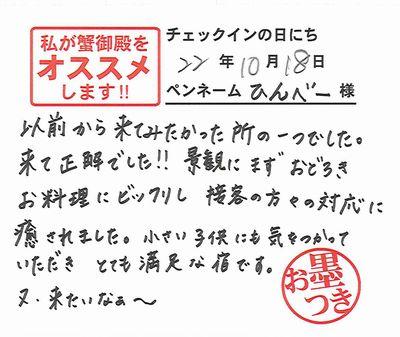 私が蟹御殿を
オススメ
します!!
チェックインの日にち
22年10月18日
ペンネーム ひんべー 様
以前から来てみたかった所の一つでした。
来て正解でした!! 景観にまずおどろき
お料理にビックリし 接客の方々の対応に
癒されました。小さい子供にも気をつかって
いただき とても満足な宿です。
又、来たいなぁ～
お墨つき